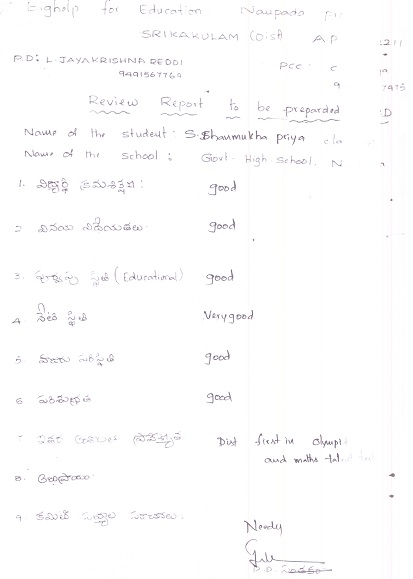 Eighelp for Education Naupada
SRIKAKULAM (Dist) A.P :211
P.D: L. JAYAKRISHNA REDDI Pcc: c
9491567760 9 7975
Review Report to be preparded :D
Name of the student: S. Shanmukha priya cla
Name of the school: Govt. High school. N
1. విద్యార్థి క్రమశిక్షణ: good
2 వినయ విధేయతలు good
3. (Educational) good
4 నేటి స్థితి Very good
5. good
6 పరిశుభ్రత good
7 ఇతర Dist first in Olympi
and maths tal
8. అభిప్రాయం
9 కమిటీ సభ్యుల సంతకాలు:
Needy
P.D. సంతకం